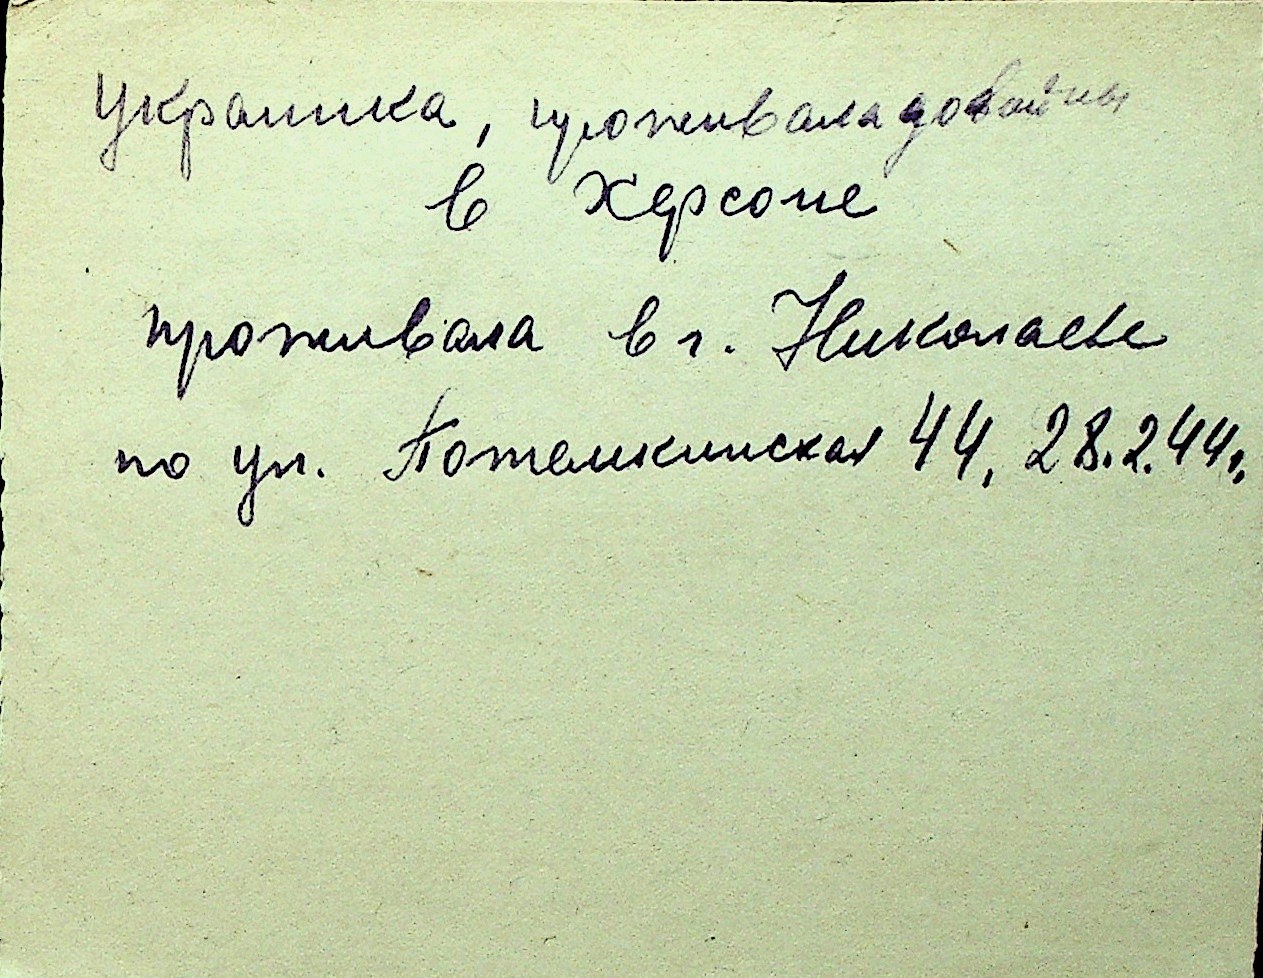 украинка, проживала до войны
в Херсоне
проживала в г. Николаеве
по ул. Потемкинская 44, 28.2.44г.